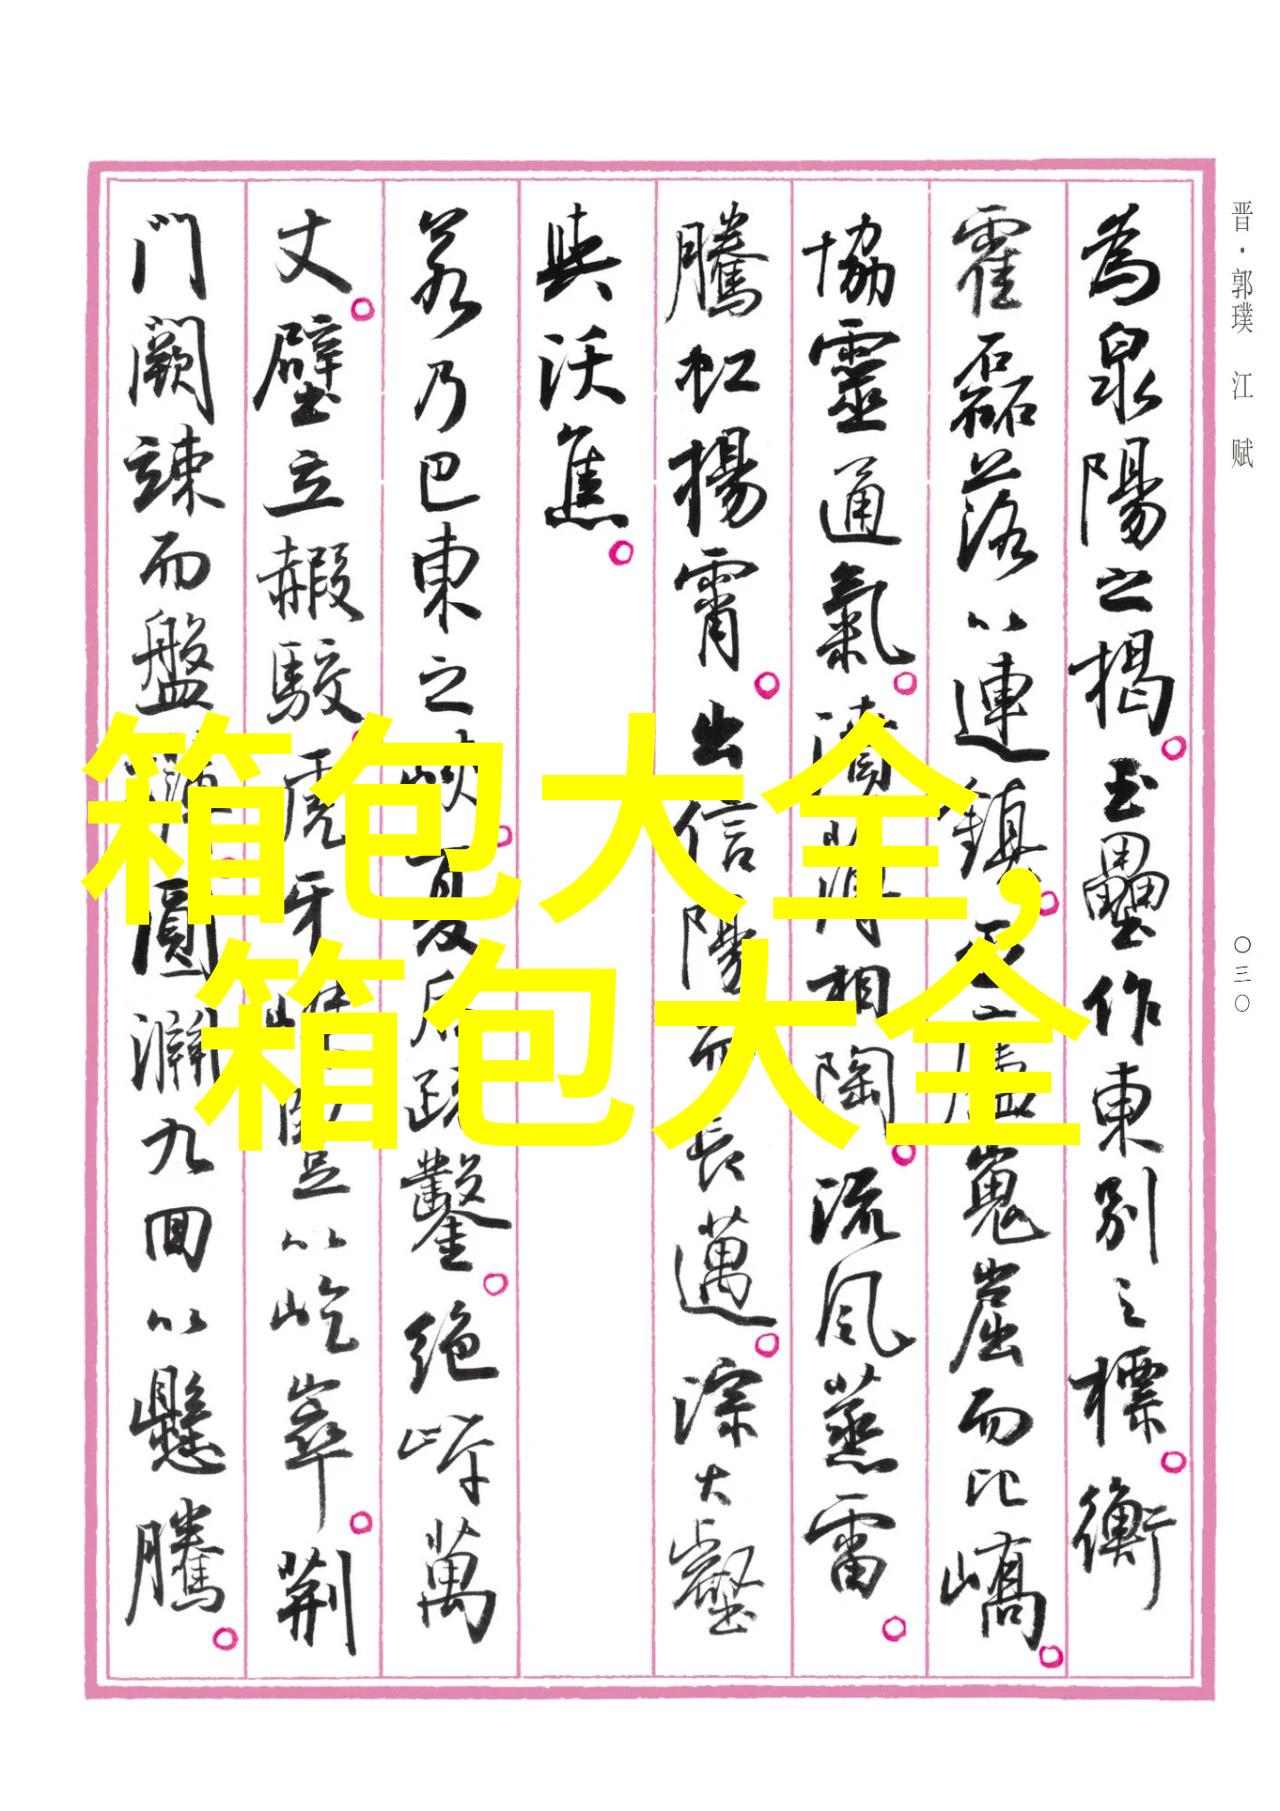 晋·郭璞 江 赋
〇三〇
為泉陽之揭。玉壘作東別之標。衡
霍磊落以連鎮。巫廬嵬崫而比嶠。
協靈通氣。濆薄相陶。流風蒸雷。
騰虹揚霄。出信陽而長邁。淙大壑
與沃焦。
若乃巴東之峽。夏后疏鑿。絕岸萬
丈。壁立赮駮。虎牙嵥豎以屹崒。荆
門闕竦而盤礴。圓淵九回以懸騰。
箱包大全,
箱包大全